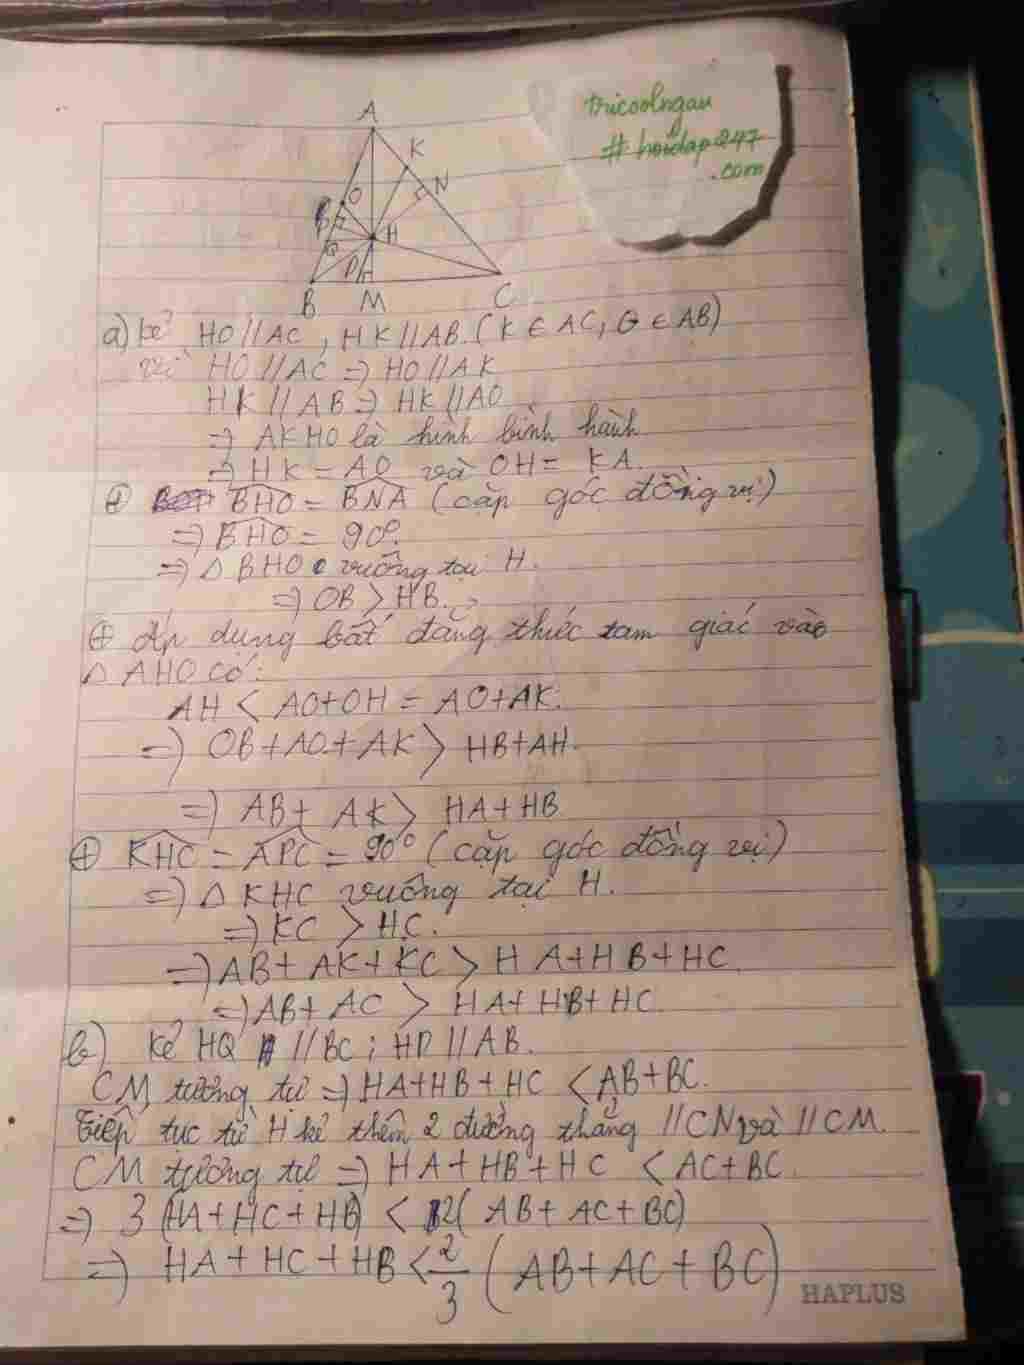 tricoolngau
# hoidap247
.com
A
K
N
O
H
Q
P
B M C
a) kẻ HO//AC, HK//AB. (K ∈ AC, O ∈ AB)
vì HO//AC => HO//AK
HK//AB => HK//AO
=> AKHO là hình bình hành
=> HK = AO và OH = KA.
+ BHO = BNA (cặp góc đồng vị)
=> BHO = 90°.
=> △ BHO vuông tại H.
=> OB > HB.
+ Áp dụng bất đẳng thức tam giác vào
△ AHO có:
AH < AO+OH = AO+AK.
=> OB+AO+AK > HB+AH.
=> AB+ AK > HA+HB
+ KHC = APC = 90° (cặp góc đồng vị)
=> △ KHC vuông tại H.
=> KC > HC.
=> AB+AK+KC > HA+HB+HC.
=> AB+ AC > HA+HB+HC
b) Kẻ HQ //BC; HP//AB.
CM tương tự => HA+HB+HC < AB+BC.
Tiếp tục từ H kẻ thêm 2 đường thẳng //CN và //CM.
CM tương tự => HA+HB+HC < AC+BC.
=> 3 (HA+HC+HB) < 2( AB+AC+BC)
=> HA+HC+HB < 2/3 (AB+AC+BC)
HAPLUS